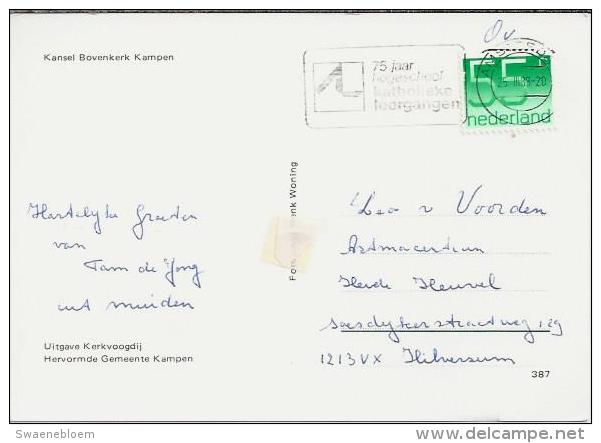 Kansel Bovenkerk Kampen
Ov
75 jaar
hogeschool
katholieke
leergangen
25.III.88-20
55
nederland
Hartelijke Groeten
van
Tam de Jong
uit muiden
Uitgave Kerkvoogdij
Hervormde Gemeente Kampen
enk Woning
Leo v Voorden
Heide Heuvel
Soesdijkerstraatweg 129
1213VX Hilversum
387
Swaenebloem
delcampe.net